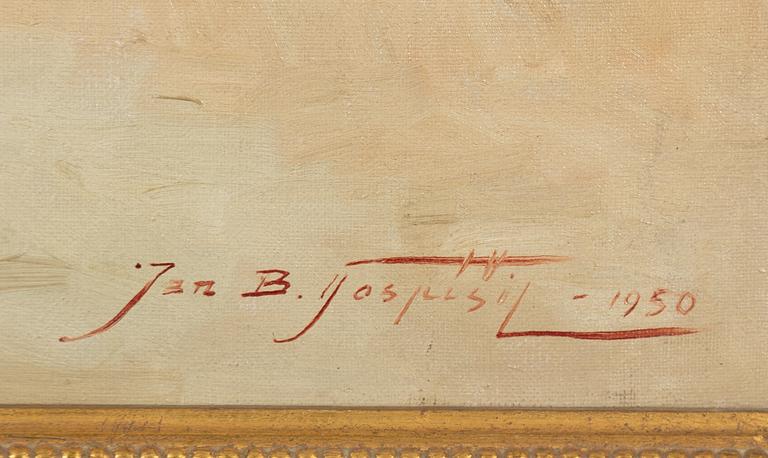 Jan B. Pospíšil - 1950